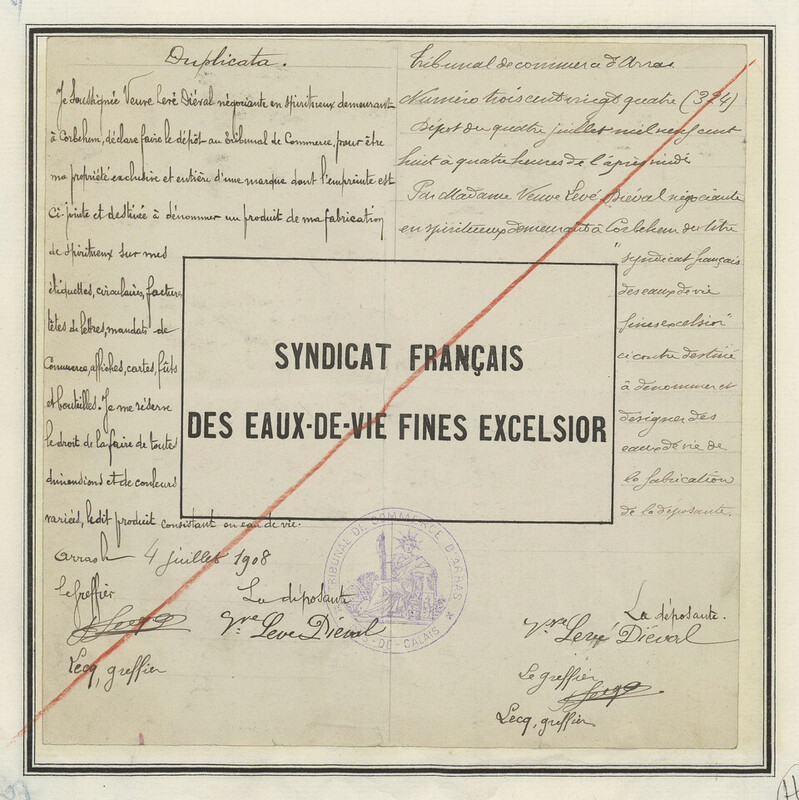 Duplicata.
Je soussignée Veuve Levé Diéval négociante en spiritueux demeurant
à Corbehem, déclare faire le dépôt au Tribunal de Commerce, pour être
ma propriété exclusive et entière d'une marque dont l'empreinte est
ci-jointe et destinée à dénommer un produit de ma fabrication
de spiritueux sur mes
étiquettes, circulaires, factures,
têtes de lettres, mandats de
Commerce, affiches, cartes, fûts
et bouteilles. Je me réserve
le droit de la faire de toute
dimensions et de couleurs
variées, le dit produit consistant en eau de vie.
Arras le 4 juillet 1908
Le Greffier
La déposante
Vve Levé Diéval
Lecq, greffier
Tribunal de commerce d'Arras
Numéro trois cent vingt quatre (324)
Dépot du quatre juillet mil neuf cent
huit à quatre heures de l'après midi
Par Madame Veuve Levé Diéval négociante
en spiritueux demeurant à Corbehem du titre
"syndicat français
des eaux de vie
fines excelsior"
ci contre destiné
à dénommer et
désigner des
eaux de vie de
la fabrication
de la déposante.
La déposante.
Vve Levé Diéval
Le greffier
Lecq, greffier
SYNDICAT FRANÇAIS
DES EAUX-DE-VIE FINES EXCELSIOR
TRIBUNAL DE COMMERCE D'ARRAS
PAS-DE-CALAIS